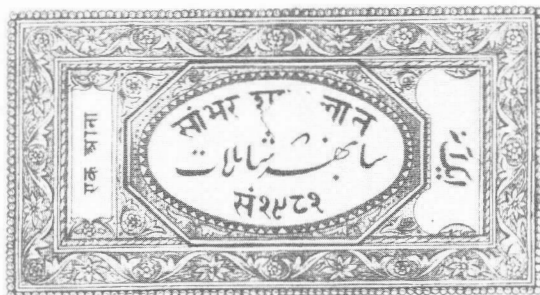 एक आना
सांभर
سانبھر شاملات
सं१९८१
ایک آنہ